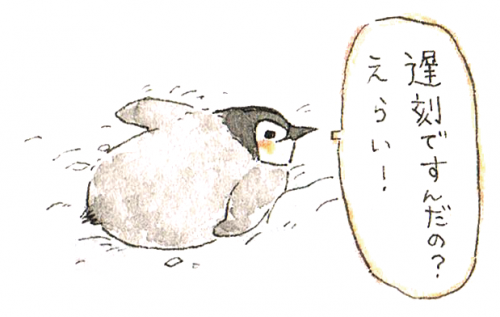 遅刻ですんだの?
えらい!